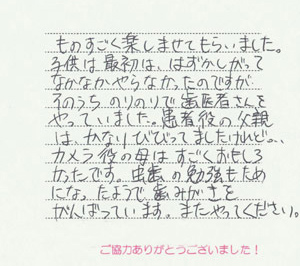 ものすごく楽しませてもらいました。
子供は最初は、はずかしがって
なかなかやらなかったのですが
そのうち のりのりで歯医者さんを
やっていました。患者役の父親
は、かなりびびってましたけれど。。
カメラ役の母はすごくおもしろ
かったです。虫歯の勉強もため
にな。たようで歯みがきを
がんばっています。またやってください。
ご協力ありがとうございました！